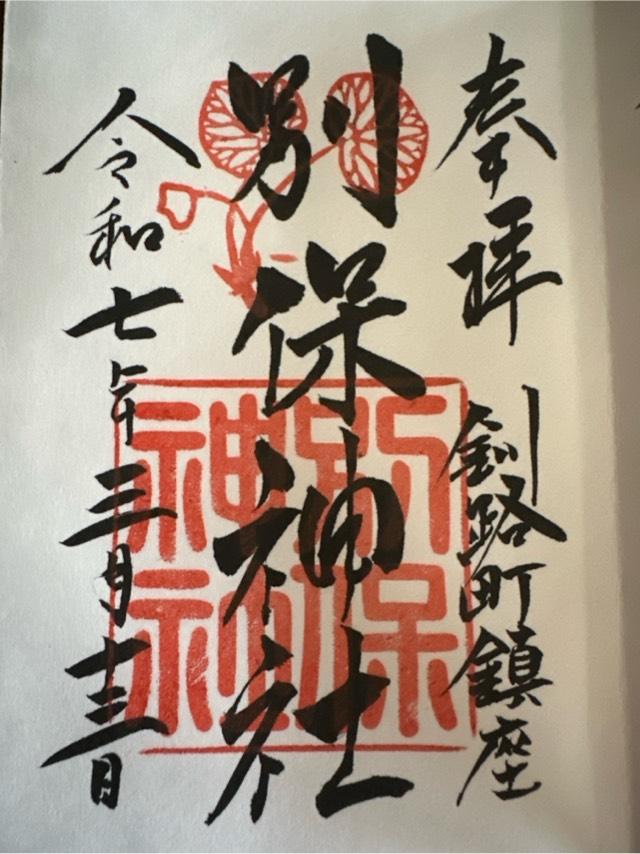 奉拝
釧路町鎮座
別保神社
別保神社
令和七年三月十三日